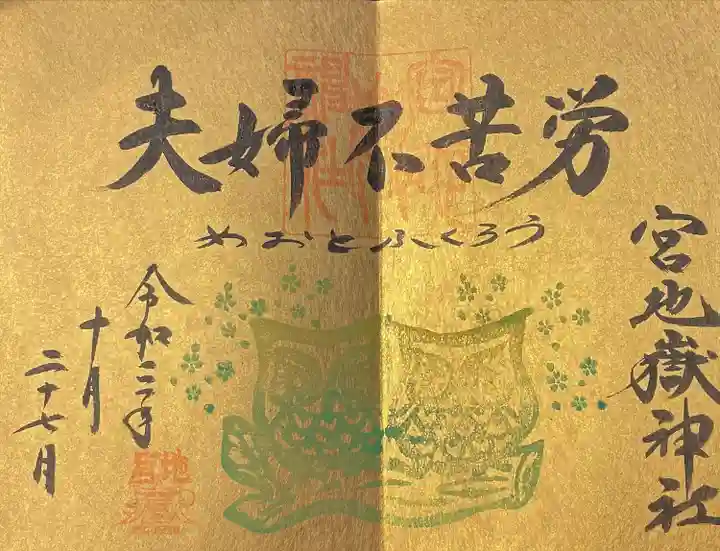 夫婦不苦労
めおとふくろう
宮地嶽神社
令和二年
十月
二十七日